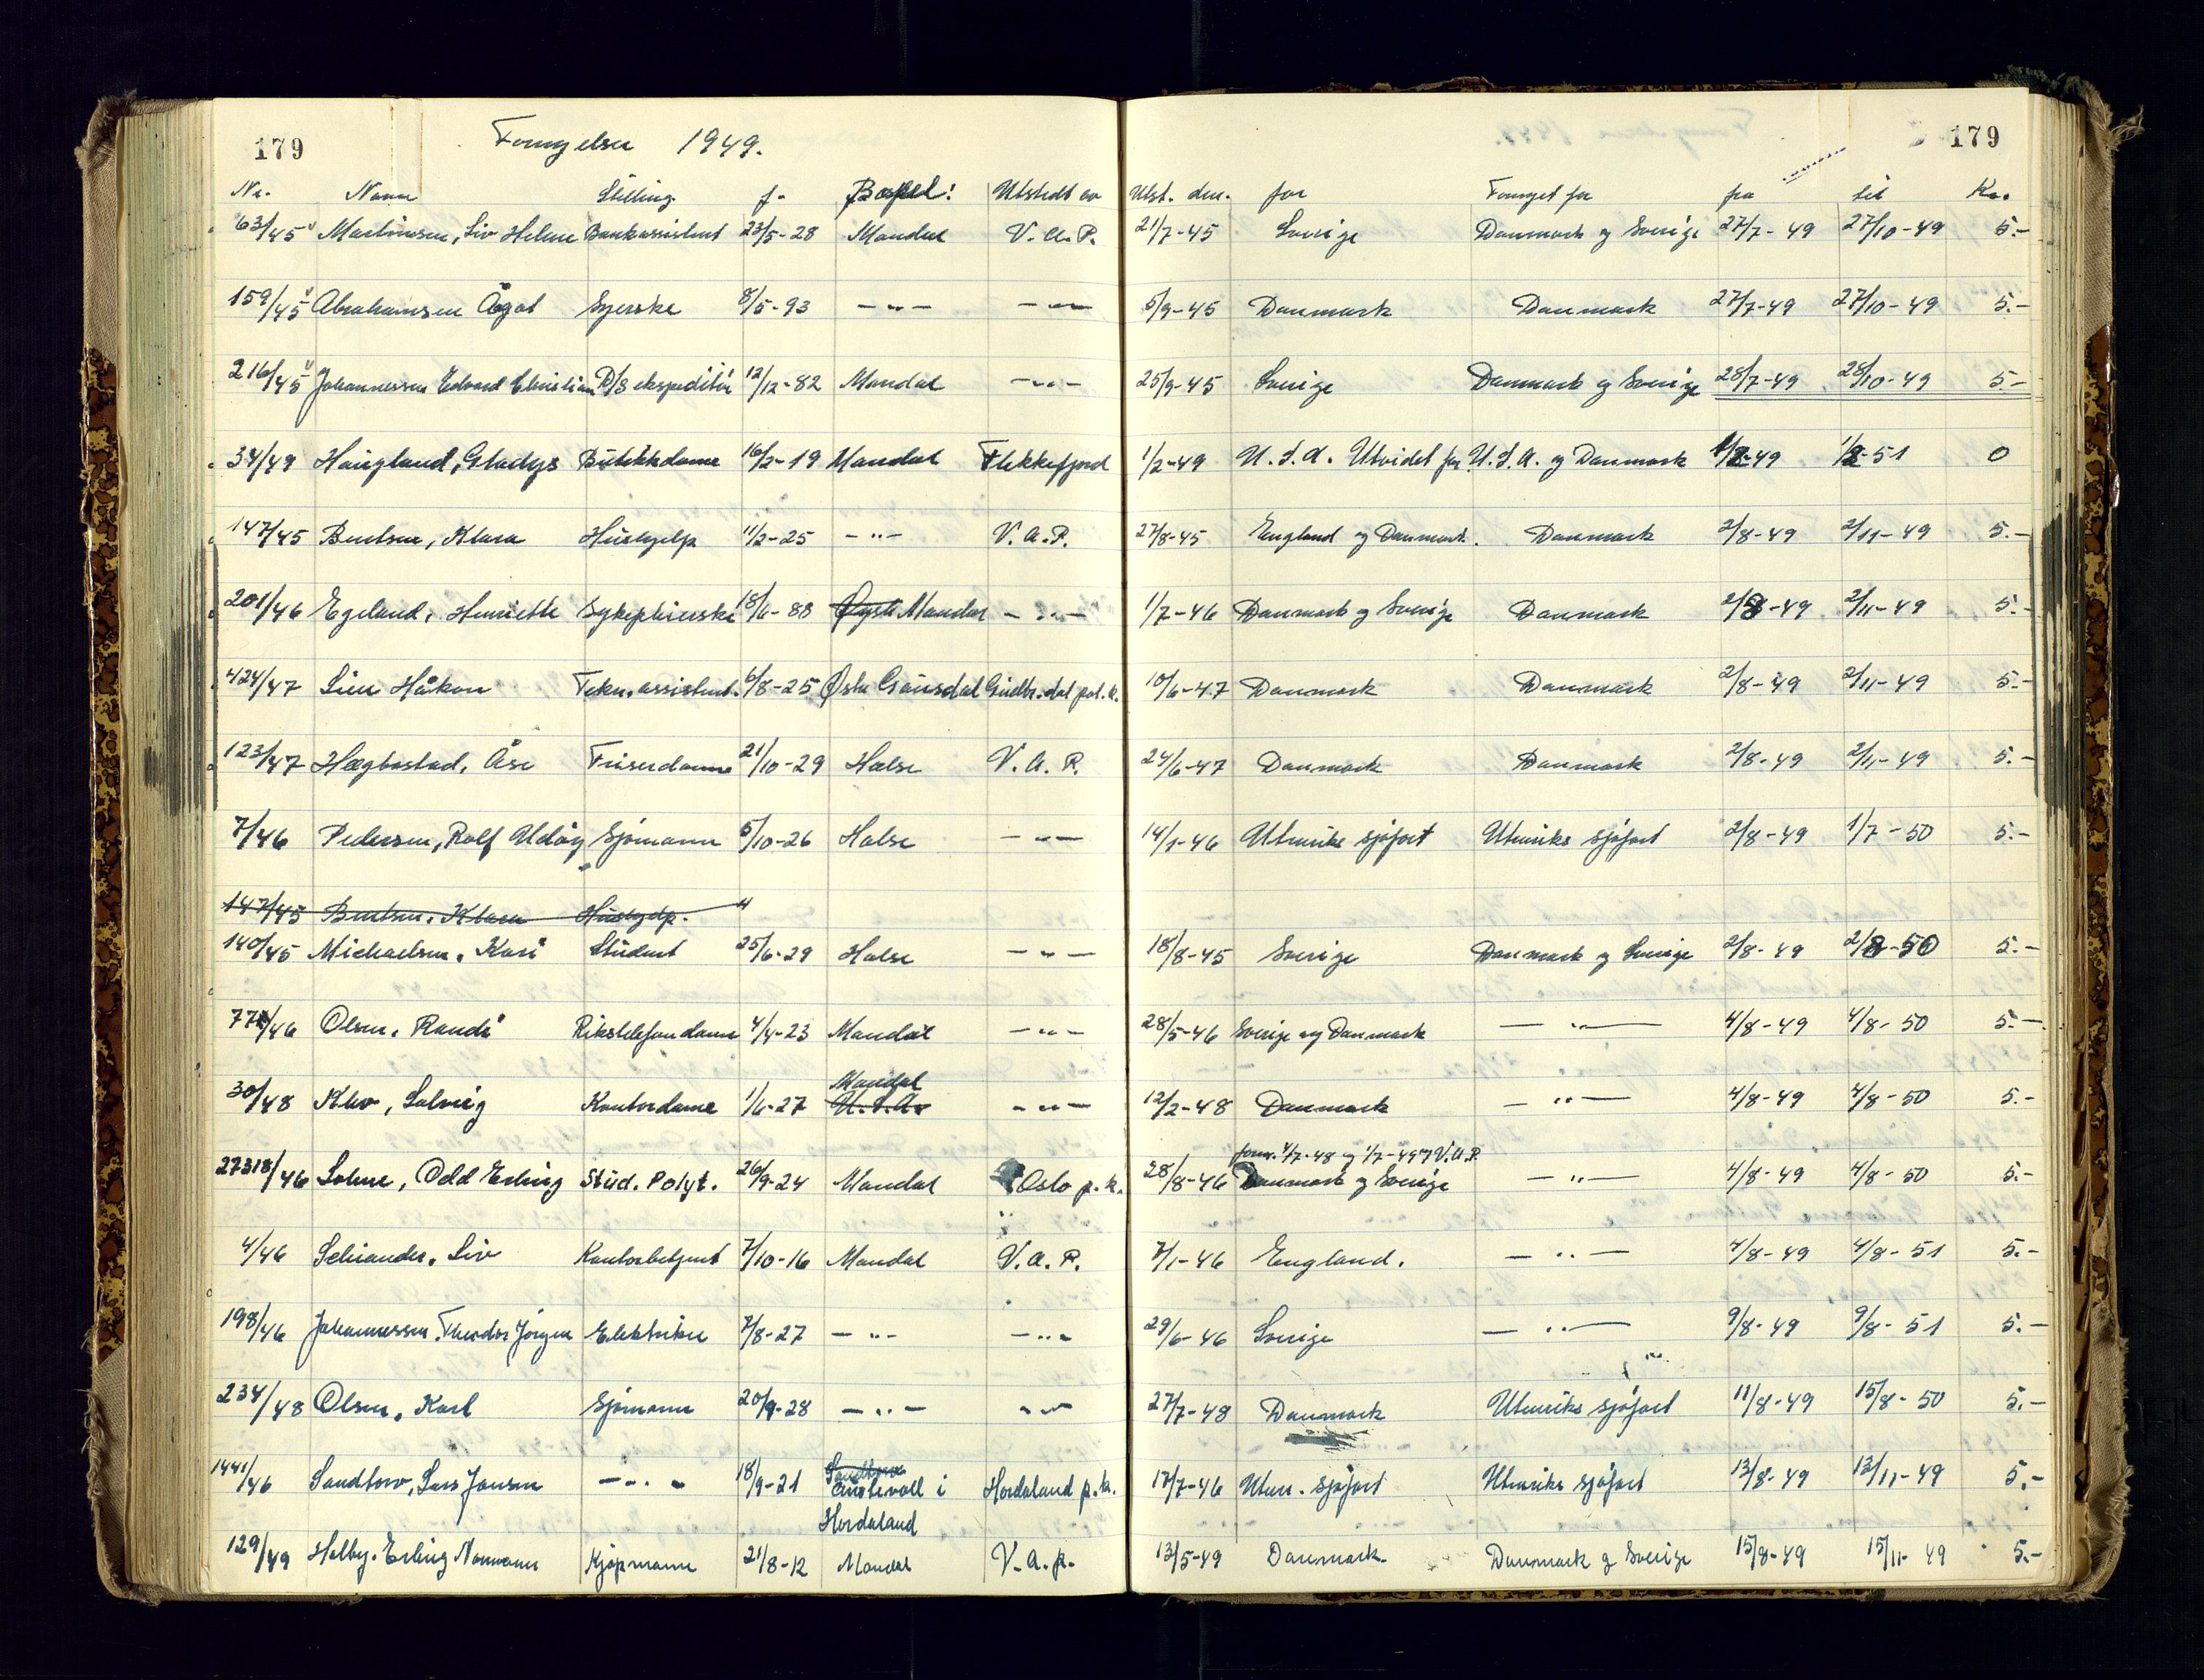 179 Fornyelser 1949. 179
Nr. Navn Stilling f. Bopel: Utstedt av Utst. den. for Fornyet for fra til Kr.
63/45 Martinsen, Liv Helene Bankassistent 23/5-28 Mandal V.A.P. 21/7-45 Sverige Danmark og Sverige 27/7-49 27/10-49 5.-
159/45 Abrahamsen Ågot Syerske 8/5-93 -"- -"- 5/9-45 Danmark Danmark 27/7-49 27/10-49 5.-
216/45 Johannessen Edvard Christian D/S ekspeditör 12/12-82 Mandal -"- 25/9-45 Sverige Danmark og Sverige 28/7-49 28/10-49 5-
34/49 Haugland, Gladys Butikkdame 16/2-19 Mandal Flekkefjord 1/2-49 U.S.A. Utvidet for U.S.A. og Danmark 1/2-49 1/2-51 0
147/45 Bentsen, Klara Hushjelp 11/2-25 -"- V.A.P. 27/8-45 England og Danmark. Danmark 2/8-49 2/11-49 5.-
201/46 Egeland, Henriette Sykepleierske 18/6-88 Mandal -"- 1/7-46 Danmark og Sverige Danmark 2/8-49 2/11-49 5.-
424/47 Lien Håkon Tekn. assistent. 6/8-25 Østre Gausdal Gudbr.dal pol.k. 10/6-47 Danmark Danmark 2/8-49 2/11-49 5.-
123/47 Hægbostad, Åse Friserdame 21/10-29 Halse V.A.P. 24/6-47 Danmark Danmark 2/8-49 2/11-49 5.-
7/46 Pedersen, Rolf Udöy Sjömann 5/10-26 Halse -"- 14/1-46 Utenriks sjöfart Utenriks sjöfart 2/8-49 1/7-50 5.-
147/45 Bentsen, Klara Hushjelp. "
140/45 Michaelsen, Kari Student 25/6-29 Halse -"- 18/8-45 Sverige Danmark og Sverige 2/8-49 2/8-50 5.-
77/46 Olsen, Randi Rikstelefondame 4/4-23 Mandal -"- 28/5-46 Sverige og Danmark -"- 4/8-49 4/8-50 5.-
Mandal
30/48 Klev, Solveig Kontordame 1/6-27 U.S.A. -"- 12/2-48 Danmark -"- 4/8-49 4/8-50 5.-
forn. 1/7-48 og 1/7-49 V.A.P.
27318/46 Solme, Odd Erling Stud. Polyt. 26/9-24 Mandal Oslo p.k. 28/8-46 Danmark og Sverige -"- 4/8-49 4/8-50 5.-
4/46 Schiander, Liv Kontorbetjent 7/10-16 Mandal V.A.P. 7/1-46 England. -"- 4/8-49 4/8-51 5.-
198/46 Johannessen, Theodor Jörgen Elektriker 7/8-27 -"- -"- 29/6-46 Sverige -"- 9/8-49 9/8-51 5.-
234/48 Olsen, Karl Sjömann 20/9-28 -"- -"- 27/7-48 Danmark Utenriks sjöfart 11/8-49 15/8-50 5.-
Sandtorv
1441/46 Sandtorv, Lars Jansen -"- 18/9-21 Austevoll i Hordaland p.k. 17/7-46 Uten. sjöfart Utenriks sjöfart 13/8-49 13/11-49 5.-
Hordaland
129/49 Holby, Erling Normann Kjöpmann 21/8-12 Mandal V.A.P. 13/5-49 Danmark. Danmark og Sverige 15/8-49 15/11-49 5.-